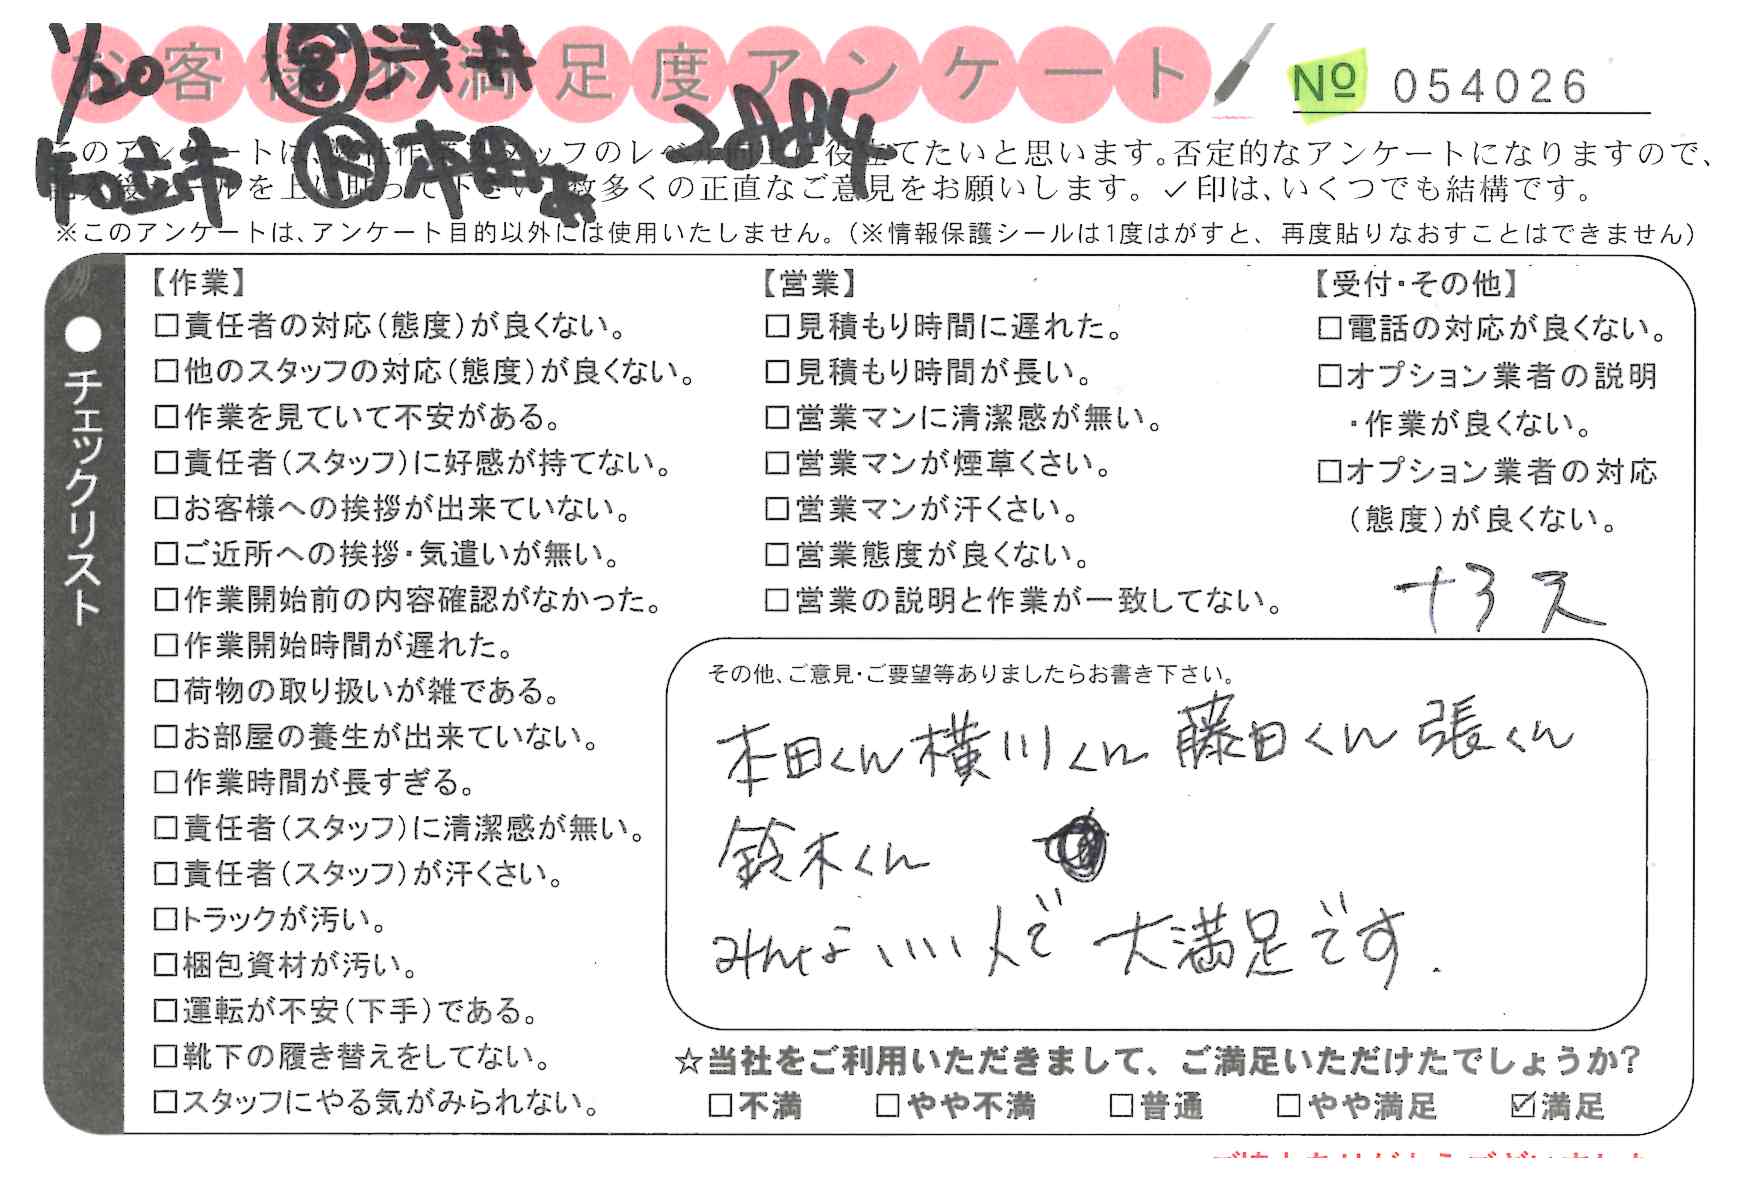 1/20 営 浅井
お客様不満足度アンケート
No 054026
2884
知立市 ド 本田
このアンケートは、弊社作業スタッフのレベル向上に役立てたいと思います。否定的なアンケートになりますので、
記入後シールを上に貼って下さい。数多くの正直なご意見をお願いします。✓印は、いくつでも結構です。
※このアンケートは、アンケート目的以外には使用いたしません。（※情報保護シールは1度はがすと、再度貼りなおすことはできません）
●チェックリスト
【作業】
□責任者の対応（態度）が良くない。
□他のスタッフの対応（態度）が良くない。
□作業を見ていて不安がある。
□責任者（スタッフ）に好感が持てない。
□お客様への挨拶が出来ていない。
□ご近所への挨拶・気遣いが無い。
□作業開始前の内容確認がなかった。
□作業開始時間が遅れた。
□荷物の取り扱いが雑である。
□お部屋の養生が出来ていない。
□作業時間が長すぎる。
□責任者（スタッフ）に清潔感が無い。
□責任者（スタッフ）が汗くさい。
□トラックが汚い。
□梱包資材が汚い。
□運転が不安（下手）である。
□靴下の履き替えをしてない。
□スタッフにやる気がみられない。
【営業】
□見積もり時間に遅れた。
□見積もり時間が長い。
□営業マンに清潔感が無い。
□営業マンが煙草くさい。
□営業マンが汗くさい。
□営業態度が良くない。
□営業の説明と作業が一致してない。
【受付・その他】
□電話の対応が良くない。
□オプション業者の説明
・作業が良くない。
□オプション業者の対応
（態度）が良くない。
その他、ご意見・ご要望等ありましたらお書き下さい。
本田くん 横川くん 藤田くん 張くん
鈴木くん
みんないい人で 大満足です.
☆当社をご利用いただきまして、ご満足いただけたでしょうか?
□不満 □やや不満 □普通 □やや満足 ☑満足